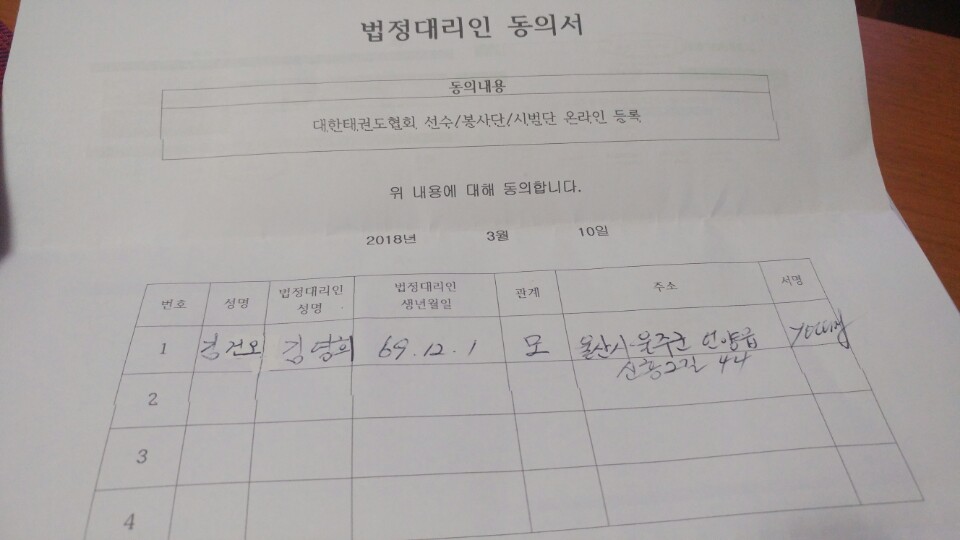 법정대리인 동의서
동의내용
대한태권도협회 선수/봉사단/시범단 온라인 등록
위 내용에 대해 동의합니다.
2018년 3월 10일
번호 성명 법정대리인 성명 법정대리인 생년월일 관계 주소 서명
1 김건오 김영희 69.12.1 모 울산시 울주군 언양읍
2길 44
2
3
4